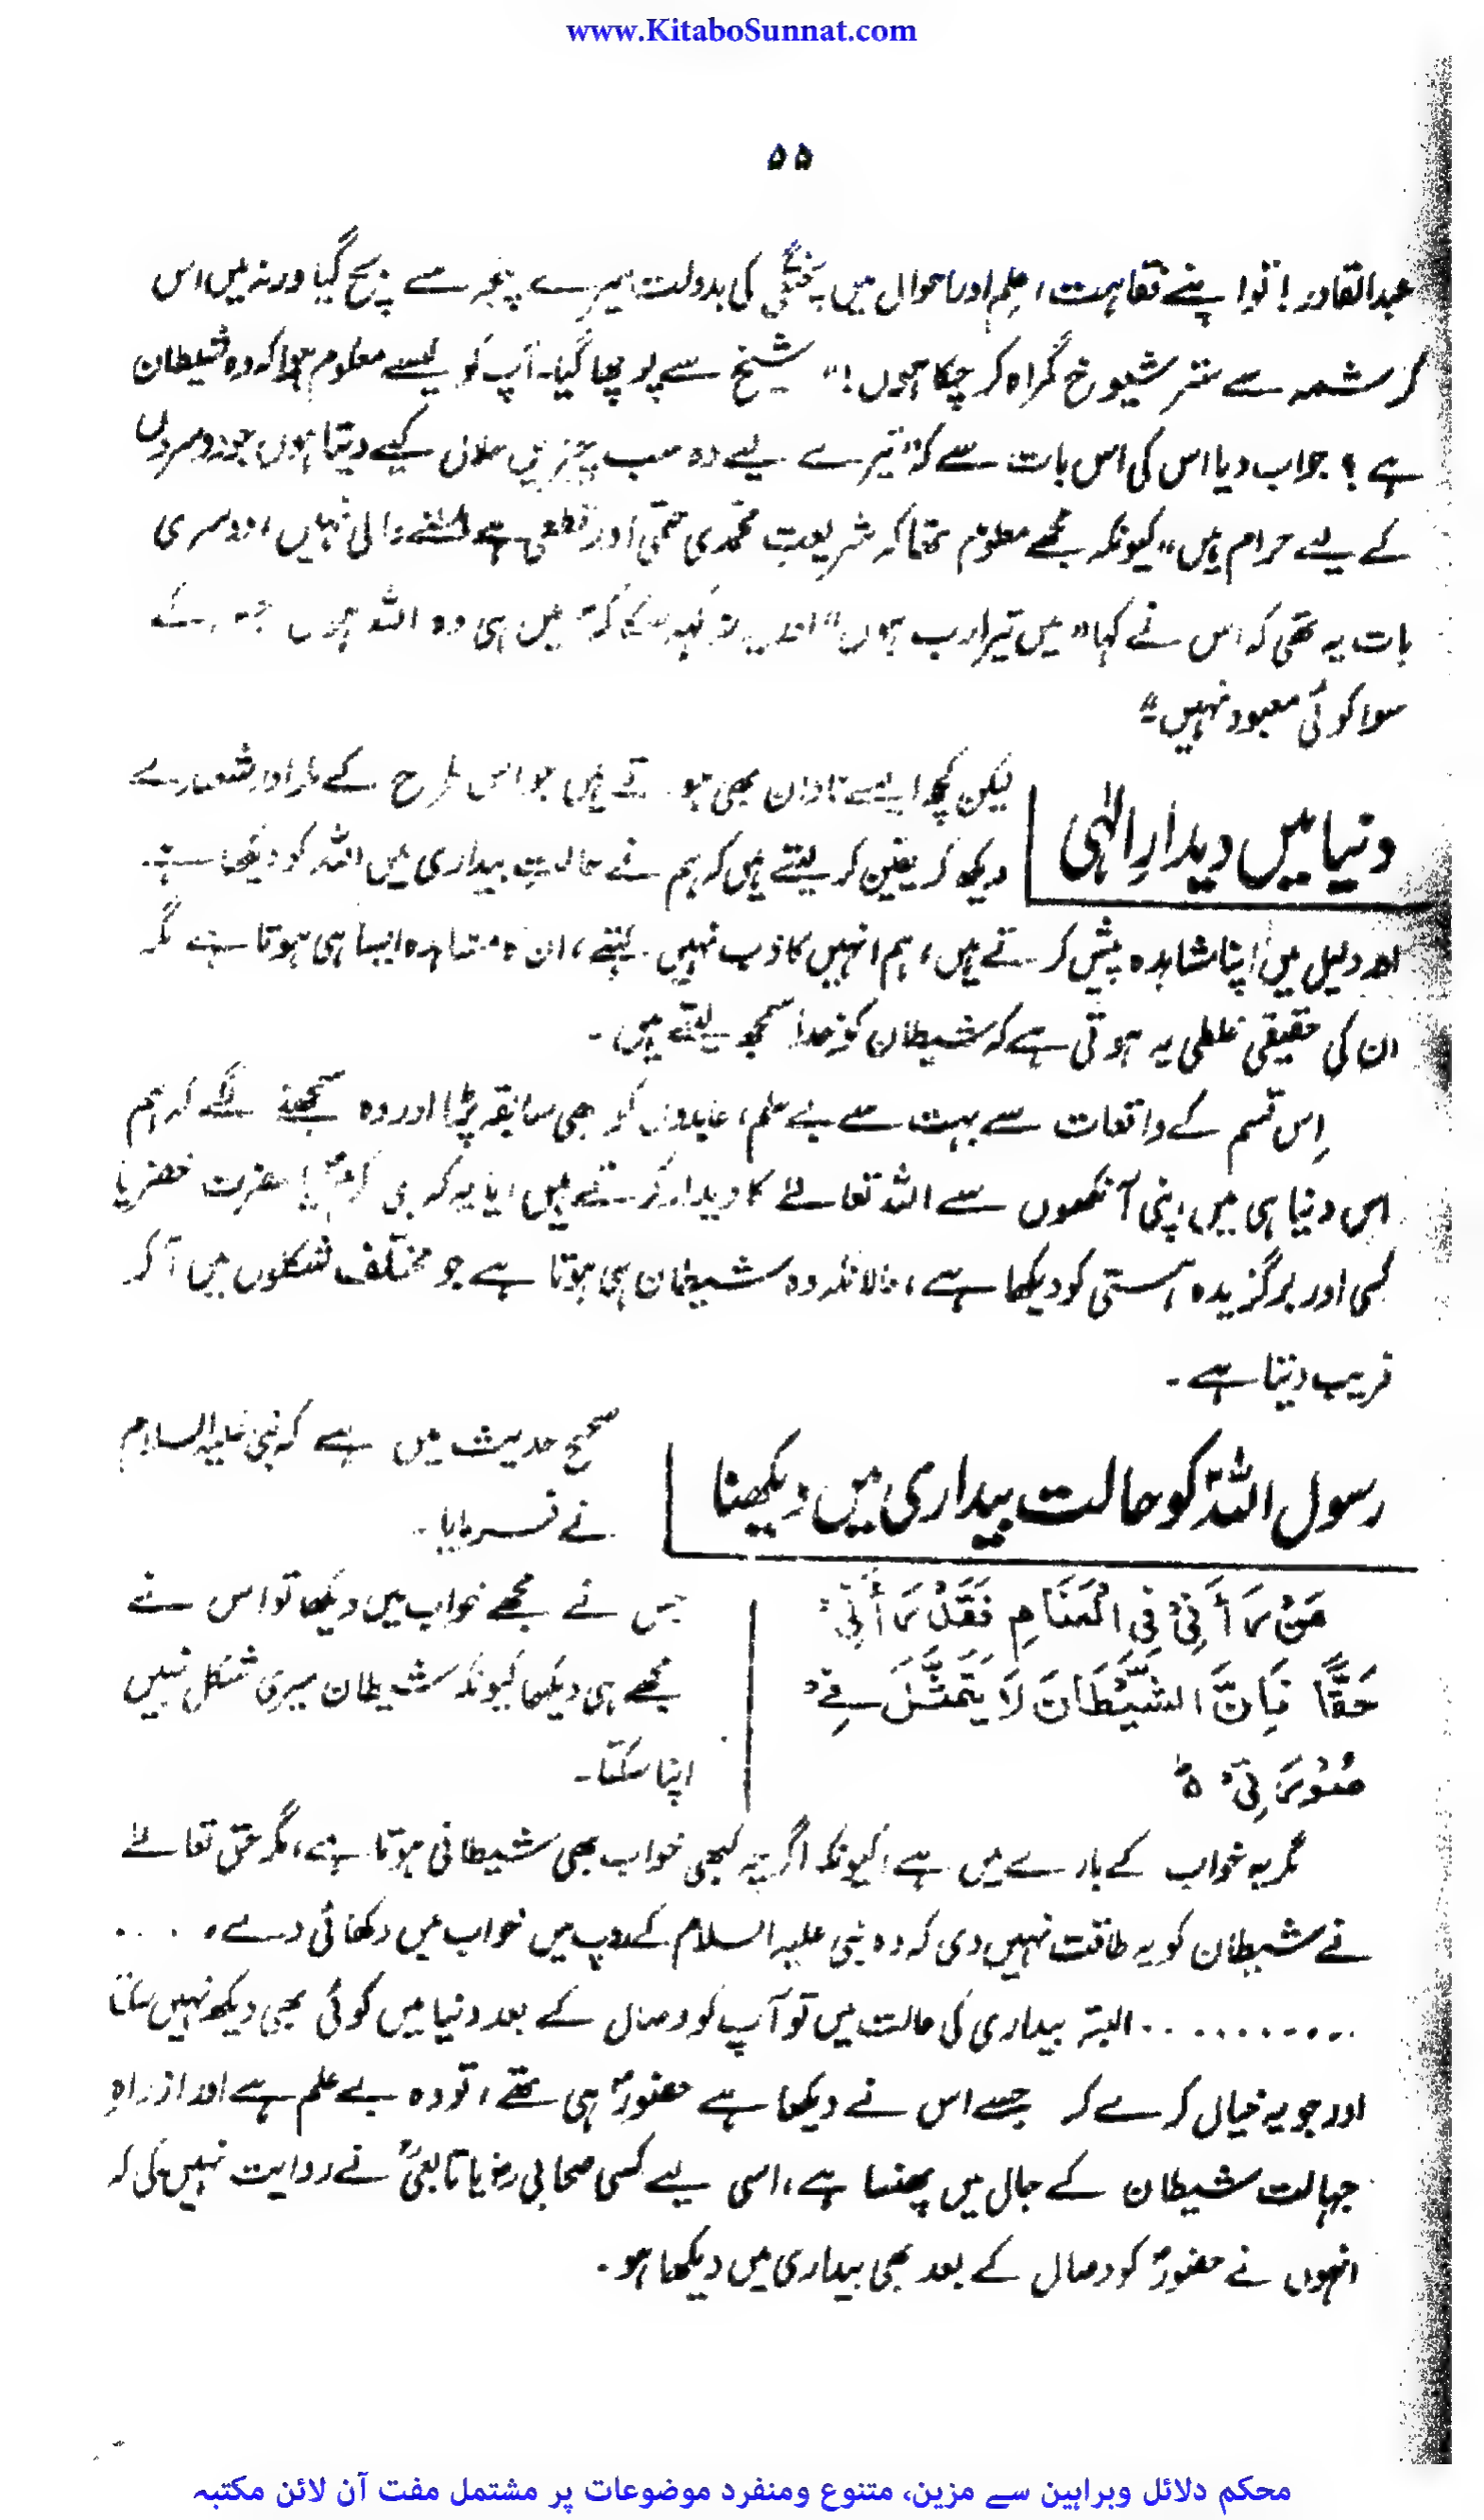 www.KitaboSunnat.com
۵۵
عبدالقادر! تو اپنے تفاہت، علم اور احوال میں پختگی کی بدولت میرے پنجہ سے بچ گیا ورنہ میں اس
کرشمہ سے ستر شیوخ گمراہ کر چکا ہوں!" شیخ سے پوچھا گیا۔ آپ کو کیسے معلوم ہوا کہ وہ شیطان
ہے؟ جواب دیا اس کی اس بات سے کہ "تیرے لیے وہ سب چیزیں حلال کیے دیتا ہوں جو دوسروں
کے لیے حرام ہیں" کیونکہ مجھے معلوم تھا کہ شریعت محمدی حتمی اور قطعی ہے مٹنے والی نہیں، دوسری
بات یہ تھی کہ اس نے کہا "میں تیرا رب ہوں" اور یہ نہ کہہ سکا کہ "میں ہی وہ اللہ ہوں جس کے
سوا کوئی معبود نہیں۔"
دنیا میں دیدارِ الٰہی
لیکن کچھ ایسے نادان بھی ہوتے ہیں جو اس طرح کے شعبدے
دیکھ کر یقین کر لیتے ہیں کہ ہم نے حالتِ بیداری میں اللہ کو دیکھا ہے۔
اور دلیل میں اپنا مشاہدہ پیش کرتے ہیں، ہم انہیں کاذب نہیں کہتے، ان کا مشاہدہ ایسا ہی ہوتا ہے مگر
ان کی حقیقی غلطی یہ ہوتی ہے کہ شیطان کو خدا سمجھ لیتے ہیں۔
اِس قسم کے واقعات سے بہت سے بے علم، عابدوں کو بھی سابقہ پڑا اور وہ سمجھنے لگے کہ ہم
اس دنیا ہی میں اپنی آنکھوں سے اللہ تعالےٰ کا دیدار کرتے ہیں، یا یہ کہ نبی اکرمؐ یا حضرت خضر یا
کسی اور برگزیدہ ہستی کو دیکھا ہے، حالانکہ وہ شیطان ہی ہوتا ہے جو مختلف شکلوں میں آ کر
فریب دیتا ہے۔
رسول اللہؐ کو حالت بیداری میں دیکھنا
صحیح حدیث میں ہے کہ نبی علیہ السلام
نے فرمایا۔
مَنْ رَأَنِیْ فِی الْمَنَامِ فَقَدْ رَأَنِیْ
حَقًّا فَاِنَّ الشَّیْطَانَ لَا یَتَمَثَّلَ فِیْ
صُوْرَتِیْ ۵
جس نے مجھے خواب میں دیکھا تو اس نے
مجھے ہی دیکھا کیونکہ شیطان میری شکل نہیں
اپنا سکتا۔
مگر یہ خواب کے بارے میں ہے، کیونکہ اگرچہ کبھی خواب بھی شیطانی ہوتا ہے، مگر حق تعالےٰ
نے شیطان کو یہ طاقت نہیں دی کہ وہ نبی علیہ السلام کے روپ میں خواب میں دکھائی دے، ....
........... البتہ بیداری کی حالت میں تو آپ کو وصال کے بعد دنیا میں کوئی بھی دیکھ نہیں سکتا
اور جو یہ خیال کرے کہ جسے اس نے دیکھا ہے حضورؐ ہی تھے، تو وہ بے علم ہے اور از راہِ
جہالت شیطان کے جال میں پھنسا ہے، اسی لیے کسی صحابی رضؓ یا تابعیؒ نے روایت نہیں کی کہ
انہوں نے حضورؐ کو وصال کے بعد بھی بیداری میں دیکھا ہو۔
محکم دلائل وبراہین سے مزین، متنوع ومنفرد موضوعات پر مشتمل مفت آن لائن مکتبہ